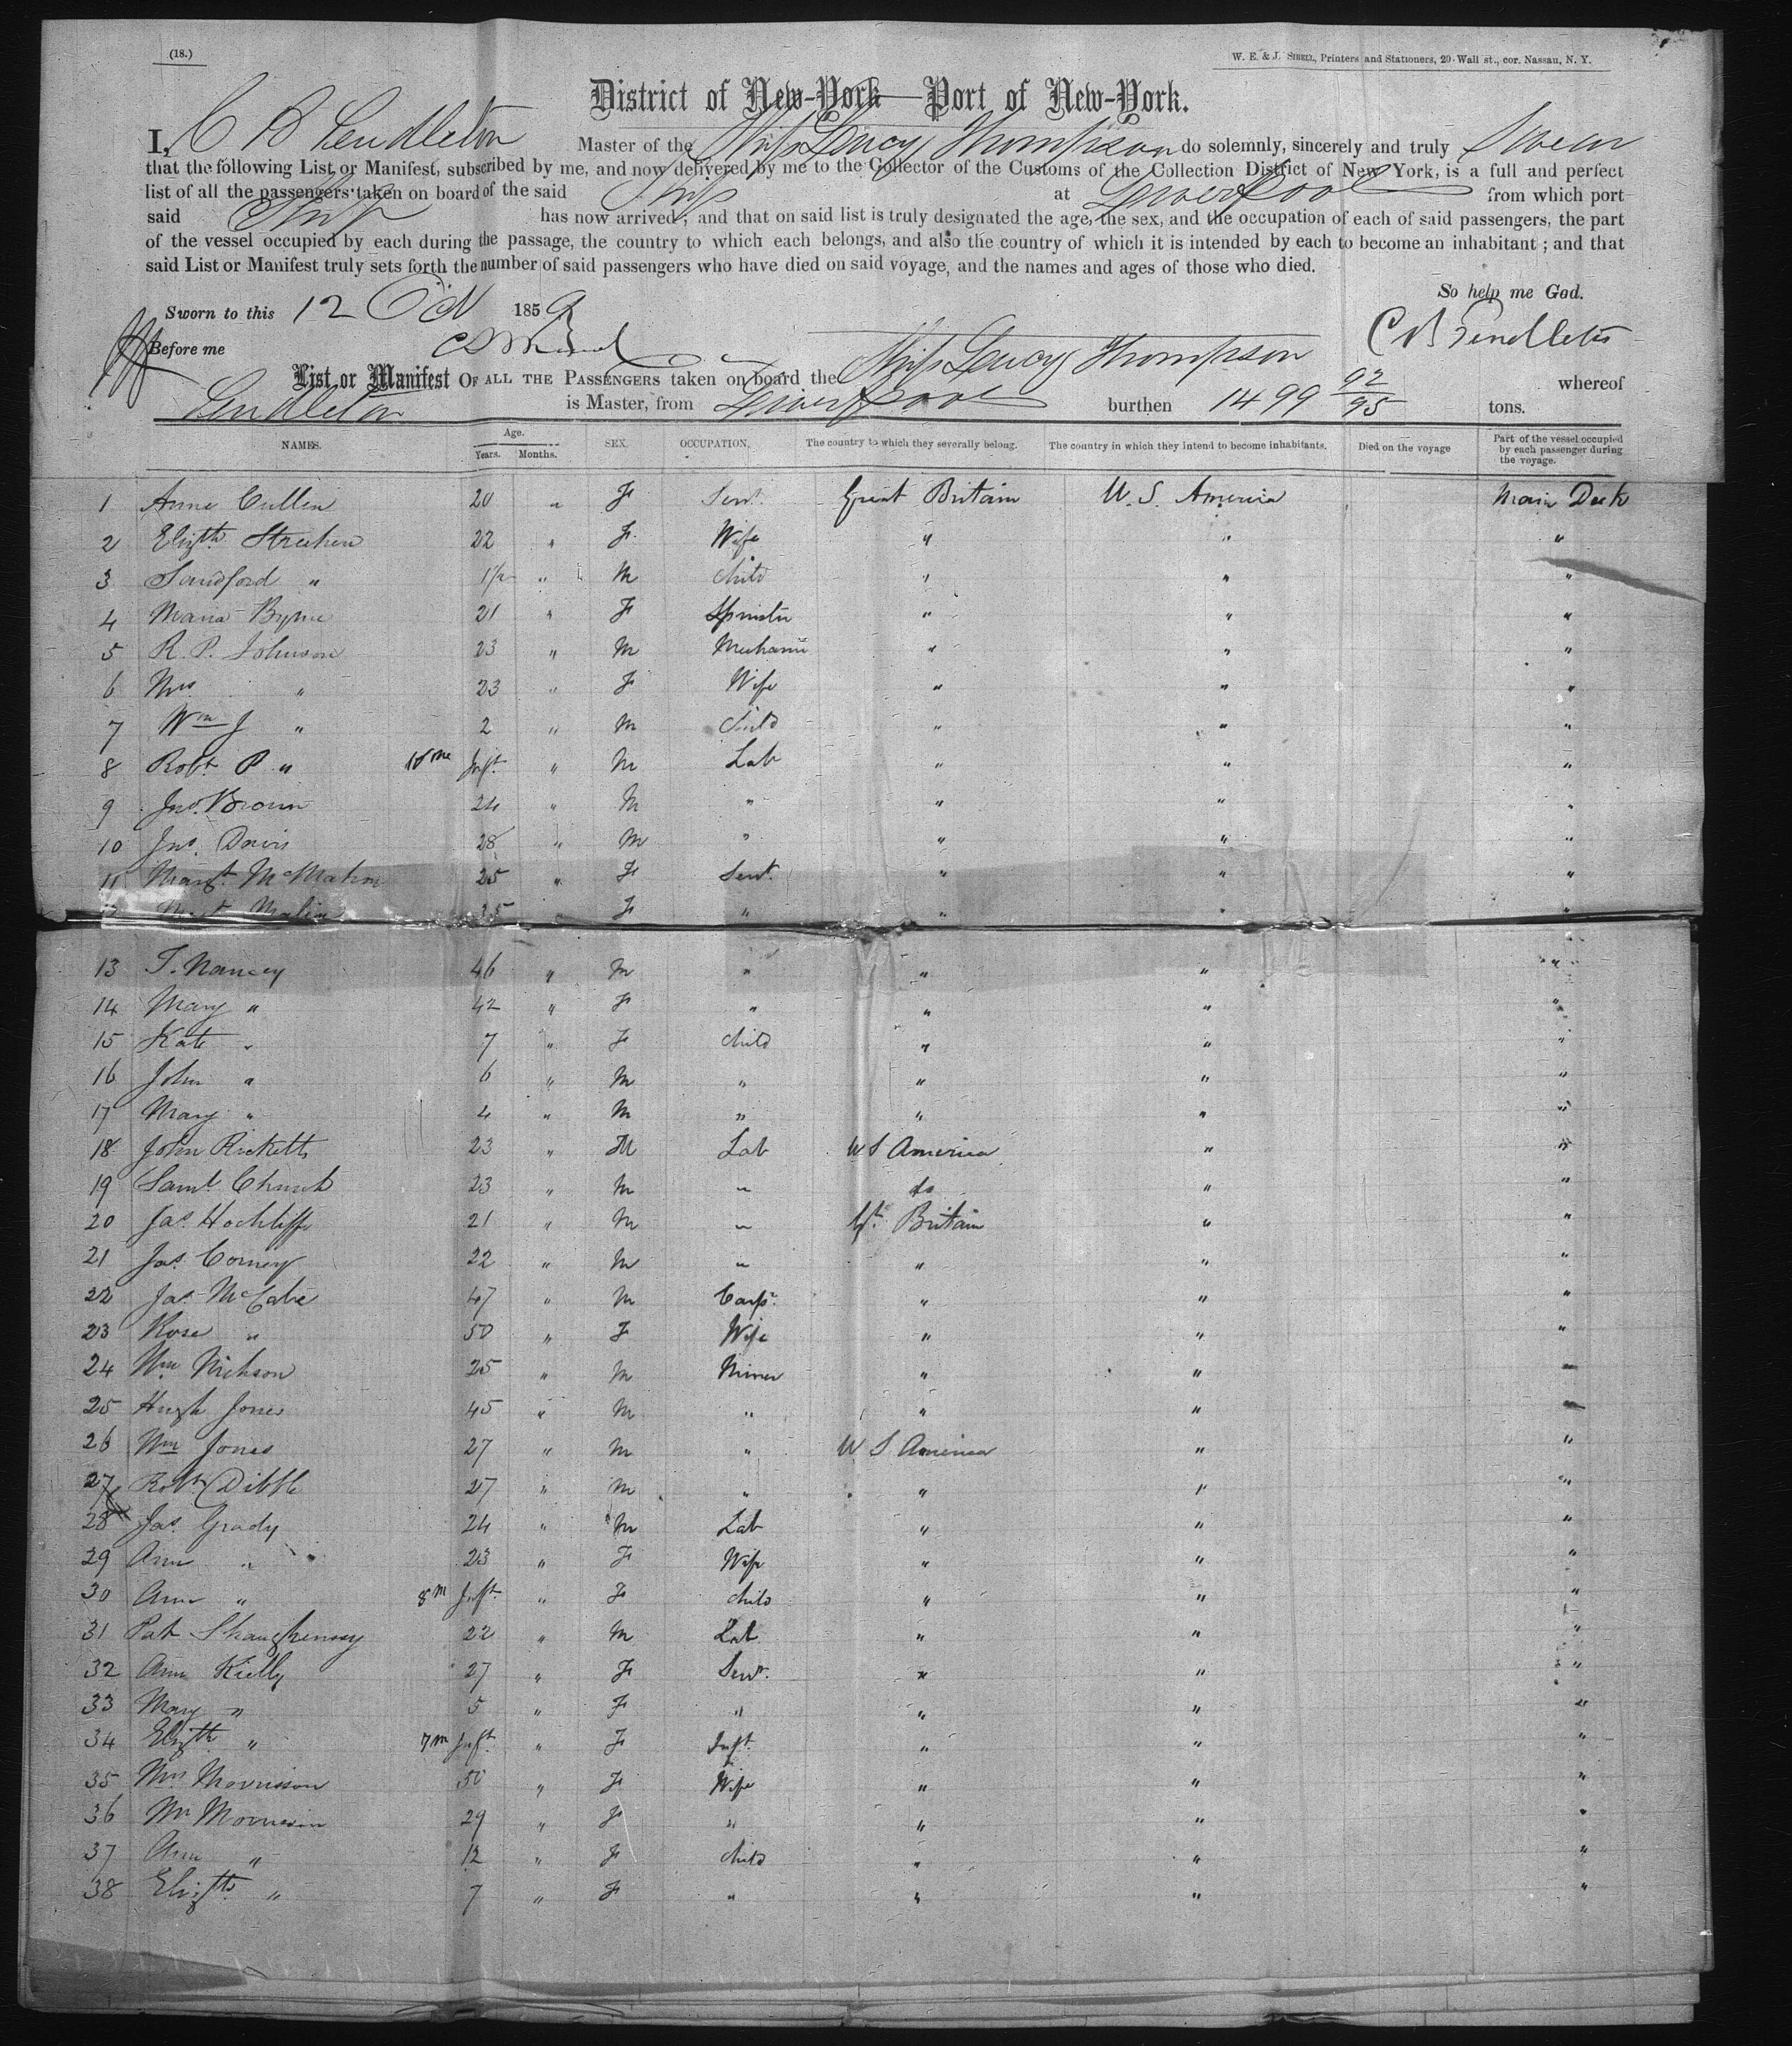 (18.)
W. E. & J. SIBELL, Printers and Stationers, 20 Wall st., cor. Nassau, N. Y.
District of New-York—Port of New-York.
I, C Pendleton Master of the Ship Lucy Thompson do solemnly, sincerely and truly Swear
that the following List or Manifest, subscribed by me, and now delivered by me to the Collector of the Customs of the Collection District of New York, is a full and perfect
list of all the passengers taken on board of the said Ship at Liverpool from which port
said Ship has now arrived; and that on said list is truly designated the age, the sex, and the occupation of each of said passengers, the part
of the vessel occupied by each during the passage, the country to which each belongs, and also the country of which it is intended by each to become an inhabitant; and that
said List or Manifest truly sets forth the number of said passengers who have died on said voyage, and the names and ages of those who died.
So help me God.
Sworn to this 12 Oct 1859 C Pendleton
Before me
List or Manifest OF ALL THE PASSENGERS taken on board the Ship Lucy Thompson whereof
Pendleton is Master, from Liverpool burthen 1499 92/95 tons.
NAMES. Age. Years. Months. SEX. OCCUPATION. The country to which they severally belong. The country in which they intend to become inhabitants. Died on the voyage Part of the vessel occupied by each passenger during the voyage.
1 Anne Cullen 20 " F Servt. Great Britain U. S. America Main Deck
2 Elizth 22 " F. Wife " " "
3 Sandford " 1½ " M Child " " "
4 Maria Byrne 21 " F Spinster " " "
5 R. P. Johnson 23 " M Mechanic " " "
6 Mrs " 23 " F Wife " " "
7 Wm J " 2 " M Child " " "
8 Robt. P " 10 me Inft. " M Lab " " "
9 Jno. Brown 24 " M " " " "
10 Jno. Davis 28 " M " " " "
11 Margt. McMahon 25 " F Servt. " " "
25 F " " " "
13 T. Nancey 46 " M " " " "
14 Mary " 42 " F " " " "
15 Kate " 7 " F Child " " "
16 John " 6 " M " " " "
17 Mary " 4 " M " " " "
18 John Ricketts 23 " M Lab U S America " "
19 Saml. Church 23 " M " do " "
20 Jas. Hochliffe 21 " M " Gt. Britain " "
21 Jas. 22 " M " " " "
22 Jas. McCabe 47 " M Carpr. " " "
23 Rose " 50 " F Wife " " "
24 Wm. Nickson 25 " M Miner " " "
25 Hugh Jones 45 " M " " " "
26 Wm Jones 27 " M " U S America " "
27 Robt. Dibble 27 " M " " " "
28 Jas. Grady 24 " M Lab " " "
29 Ann " 23 " F Wife " " "
30 Ann " 8 m Inft. " F Child " " "
31 Pat Shaughenssy 22 " M Lab " " "
32 Ann Kielly 27 " F Servt. " " "
33 Mary " 5 " F " " " "
34 Elizth " 7 m Inft. " F Inft. " " "
35 Mrs Morrisson 30 " F Wife " " "
36 Mr Morrison 29 " F " " " "
37 Ann " 12 " F Child " " "
38 Elizth " 7 " F " " " "